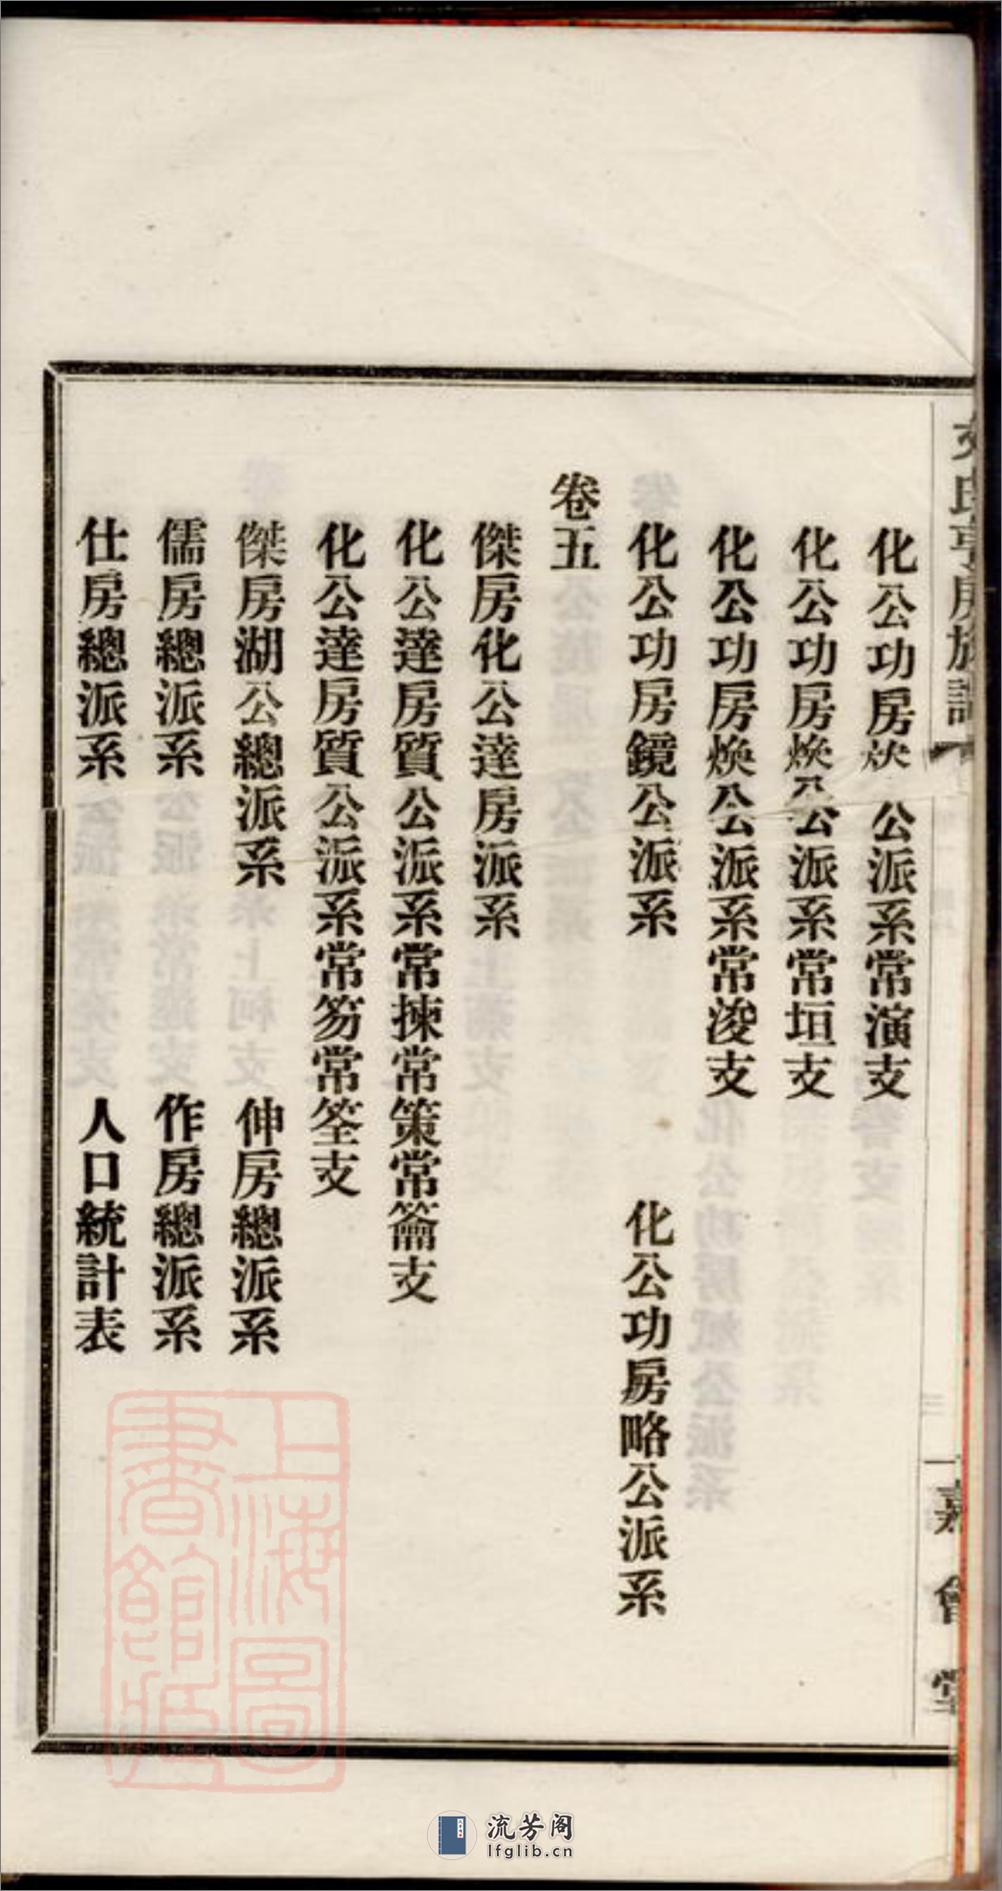 氏亨房族譜
嘉會堂
化公功房焕公派系常演支
化公功房焕公派系常垣支
化公功房焕公派系常浚支
化公功房鏡公派系　化公功房略公派系
卷五
傑房化公達房派系
化公達房質公派系常揀常策常籥支
化公達房質公派系常笏常筌支
傑房湖公總派系　伸房總派系
儒房總派系　作房總派系
仕房總派系　人口統計表
上海圖
書館藏
流芳阁
lfglib.cn